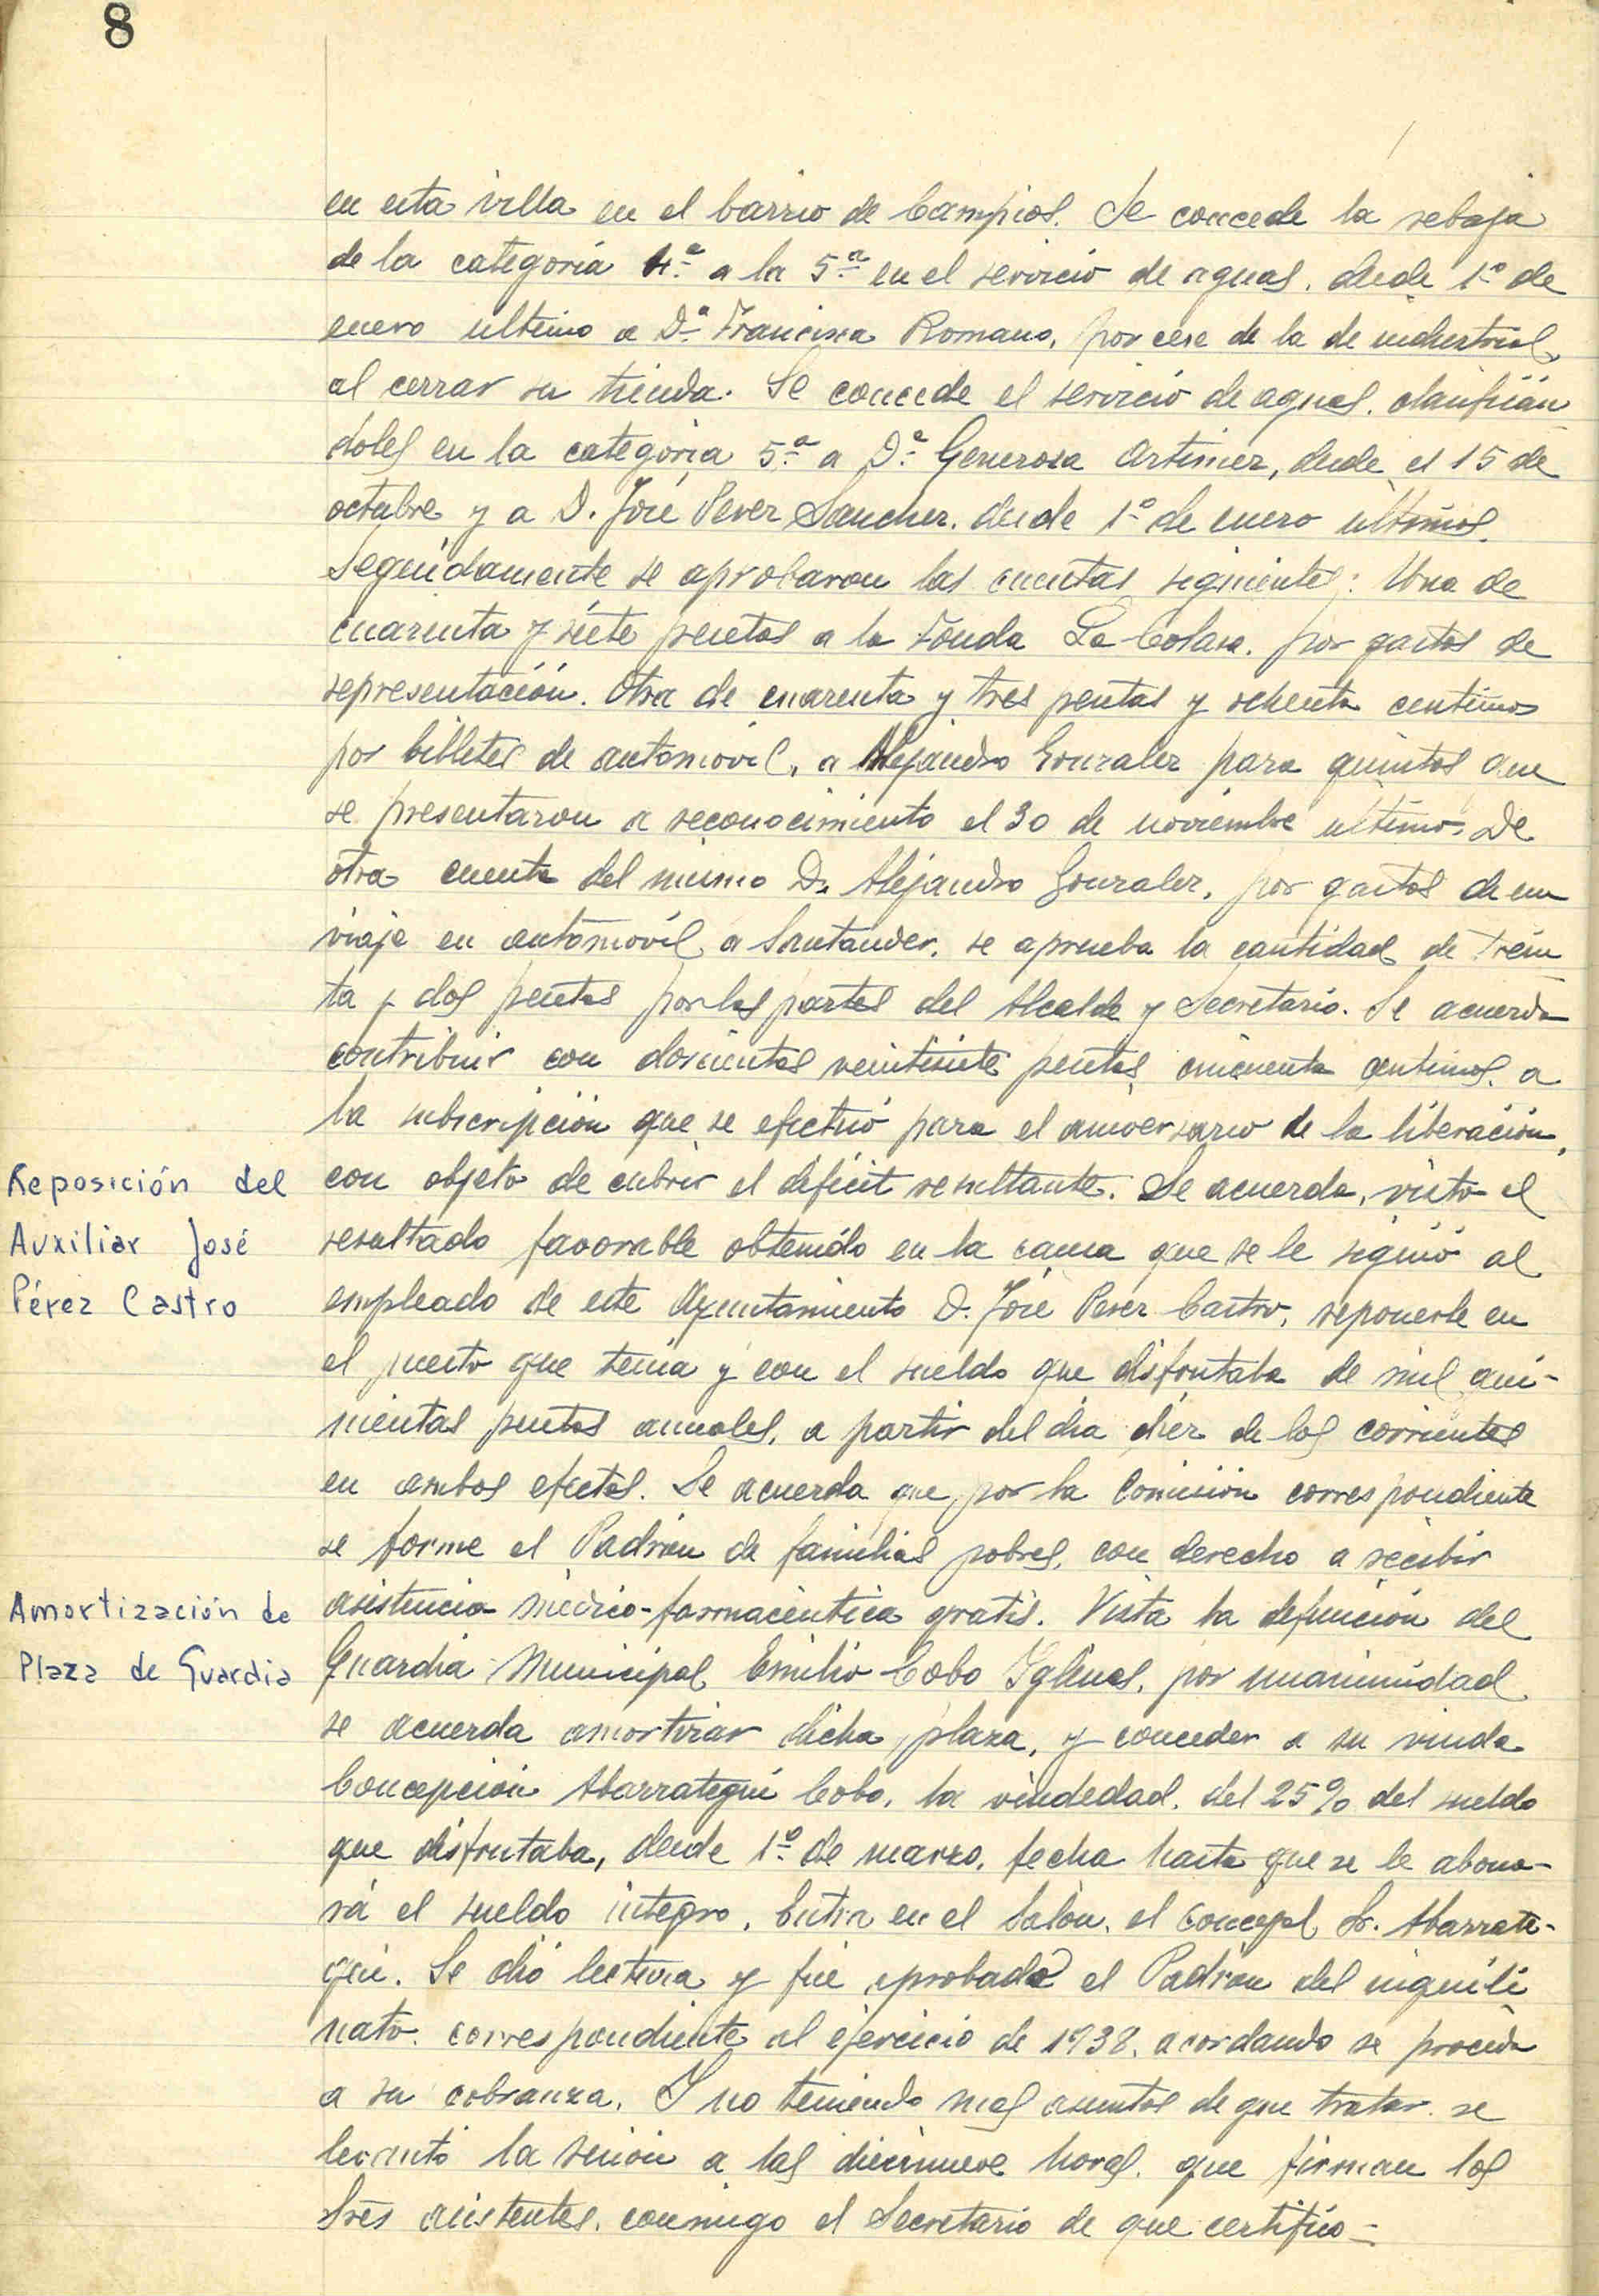 8
en esta villa en el barrio de Campios. Se concede la rebaja
de la categoría 4.ª a la 5.ª en el servicio de aguas, desde 1.º de
enero ultimo a D.ª Francisca Romano, por cese de la de industrial,
al cerrar su tienda. Se concede el servicio de aguas, clasificán
doles en la categoria 5.ª a D.ª Generosa Artimez, desde el 15 de
octubre y a D. José Perez Sanchez, desde 1.º de enero ultimos.
Seguidamente se aprobaron las cuentas siguientes: Una de
cuarenta y siete pesetas a la Fonda La Colasa, por gastos de
representación. Otra de cuarenta y tres pesetas y ochenta centimos
por billetes de automóvil, a Alejandro Gonzalez para quintos que
se presentaron a reconocimiento el 30 de noviembre ultimo. De
otra cuenta del mismo D. Alejandro Gonzalez, por gastos de un
viaje en automóvil a Santander, se aprueba la cantidad de trein
ta y dos pesetas por las partes del Alcalde y Secretario. Se acuerda
contribuir con doscientas veintisiete pesetas cincuenta centimos, a
la subscripción que se efectuó para el aniversario de la liberación,
Reposición del
Auxiliar José
Pérez Castro
con objeto de cubrir el déficit resultante. Se acuerda, visto el
resultado favorable obtenido en la causa que se le siguió al
empleado de este Ayuntamiento D. José Perez Castro, reponerle en
el puesto que tenia y con el sueldo que disfrutaba de mil qui-
nientas pesetas anuales, a partir del dia diez de los corrientes
en ambos efectos. Se acuerda que por la Comisión correspondiente
se forme el Padrón de familias pobres, con derecho a recibir
Amortización de
Plaza de Guardia
asistencia médico-farmacéutica gratis. Vista la defunción del
Guardia Municipal Emilio Cobo Iglesias, por unanimidad
se acuerda amortizar dicha plaza, y conceder a su viuda
Concepción Abarrategui Cobo, la viudedad, del 25% del sueldo
que disfrutaba, desde 1.º de marzo, fecha hasta que se le abona-
rá el sueldo integro. Entra en el Salón, el concejal Sr. Abarrate-
gui. Se dió lectura y fué aprobado el Padrón del inquili
nato, correspondiente al ejercicio de 1938, acordando se proceda
a su cobranza. Y no teniendo mas asuntos de que tratar se
levantó la sesión a las diecinueve horas, que firman los
Sres asistentes, conmigo el Secretario de que certifico-